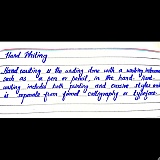 Hand Writing
Hand writing is the writing done with a writing instrument
such as a pen or pencil, in the hand. Hand-
writing includes both printing and cursive styles and
is separate from formal calligraphy or typeface.